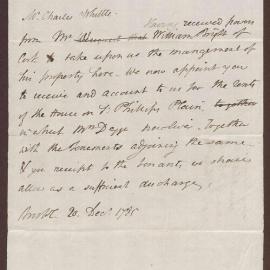 Mr Charles Whittle
Having received powers
from Mr William Bright of
Cork to take upon us the management of
his property here. We now appoint you
to receive and account to us for the Rents
of the House on St Phillips Plain together
in which Mrs now live. Together
with the Tenements adjoining the same
& your receipt to the tenants, we shall
allow as a sufficient discharge,
20 Decr 1785